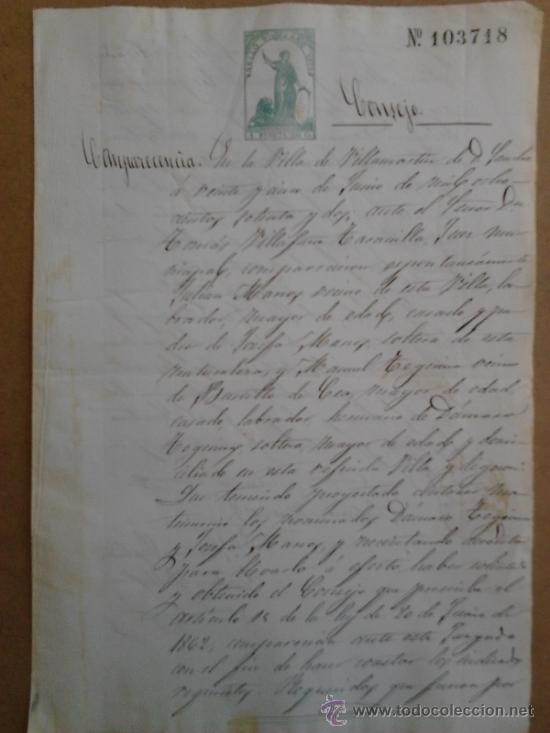 Nº 103718
Consejo.
Comparecencia. En la Villa de Villamartin de D. Sancho
á veinte y cinco de Junio de mil ocho-
cientos setenta y dos, ante el Señor Dn
Tomás Villafañe Taranilla, Juez mu-
nicipal, comparecieron espontaneamente
Julian Manos vecino de esta Villa, la-
brador, mayor de edad, casado y pa-
dre de Josefa Manos, soltera de esta
naturaleza, y Manuel vecino
de Bustillo de Cea, mayor de edad
casado, labrador, hermano de Dámaso
soltero, mayor de edad y domi-
ciliado en esta referida Villa, y dijeron:
Que teniendo proyectado contraer ma-
trimonio los nominados Dámaso
y Josefa Manos, y necesitando
para llevarlo á efecto, haber solicitado
y obtenido el Consejo que prescribe el
artículo de la ley de 20 de Junio de
1862, comparecen ante este Juzgado
con el fin de hacer constar los indicados
requisitos. Requeridos que fueron por
todocoleccion
www.todocoleccion.net